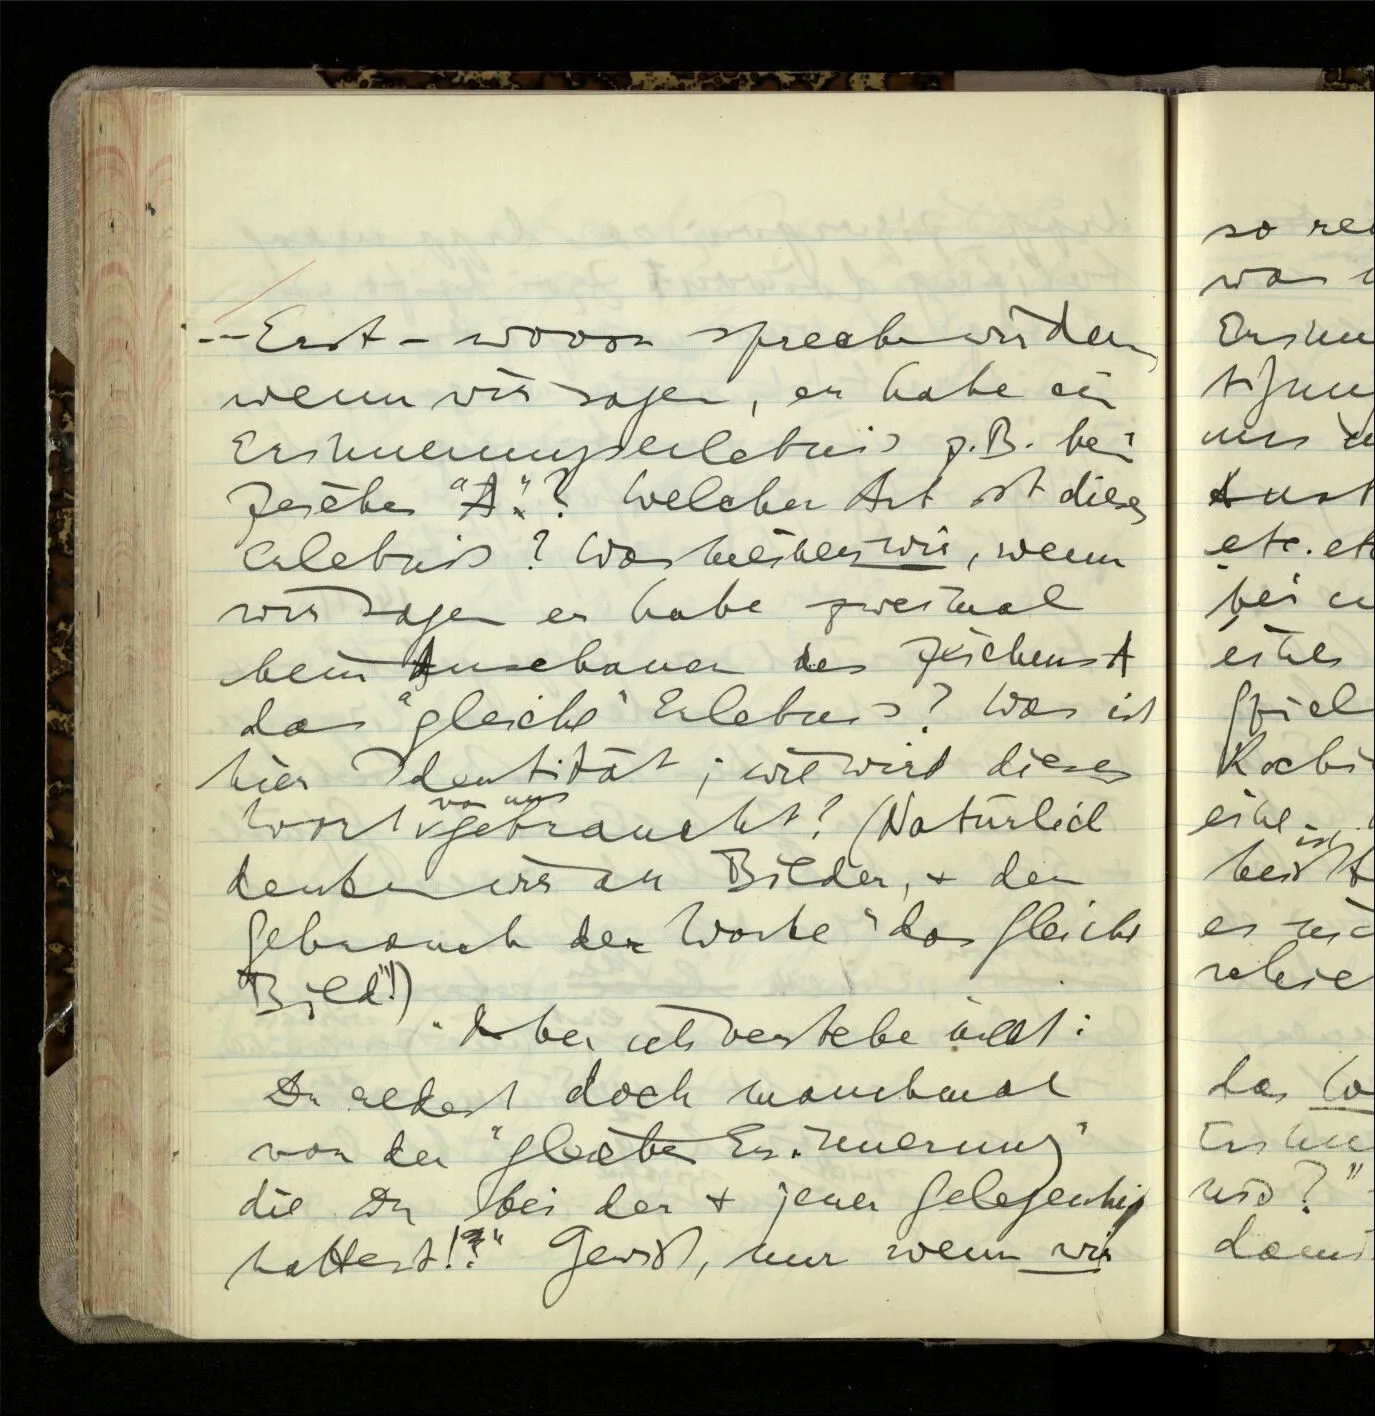 – – Erst – wovon sprechen wir denn,
wenn wir sagen, er habe ein
Erinnerungserlebnis z.B. beim
Zeichen "A"? Welcher Art ist dieses
Erlebnis? Was meinen wir, wenn
wir sagen er habe zweimal
beim Anschauen des Zeichens A
das "gleiche" Erlebnis? Was ist
hier Identität; wie wird dieses
Wort von uns gebraucht? (Natürlich
denken wir an Bilder, + den
Gebrauch der Worte "das gleiche
Bild"!)
"Aber ich verstehe nicht:
Du redest doch manchmal
von der "gleichen Erinnerung"
die Du bei der + jener Gelegenheit
hattest!?" Gewiß, nur wenn wir
so
was
etc. etc
bei
das
nis?"